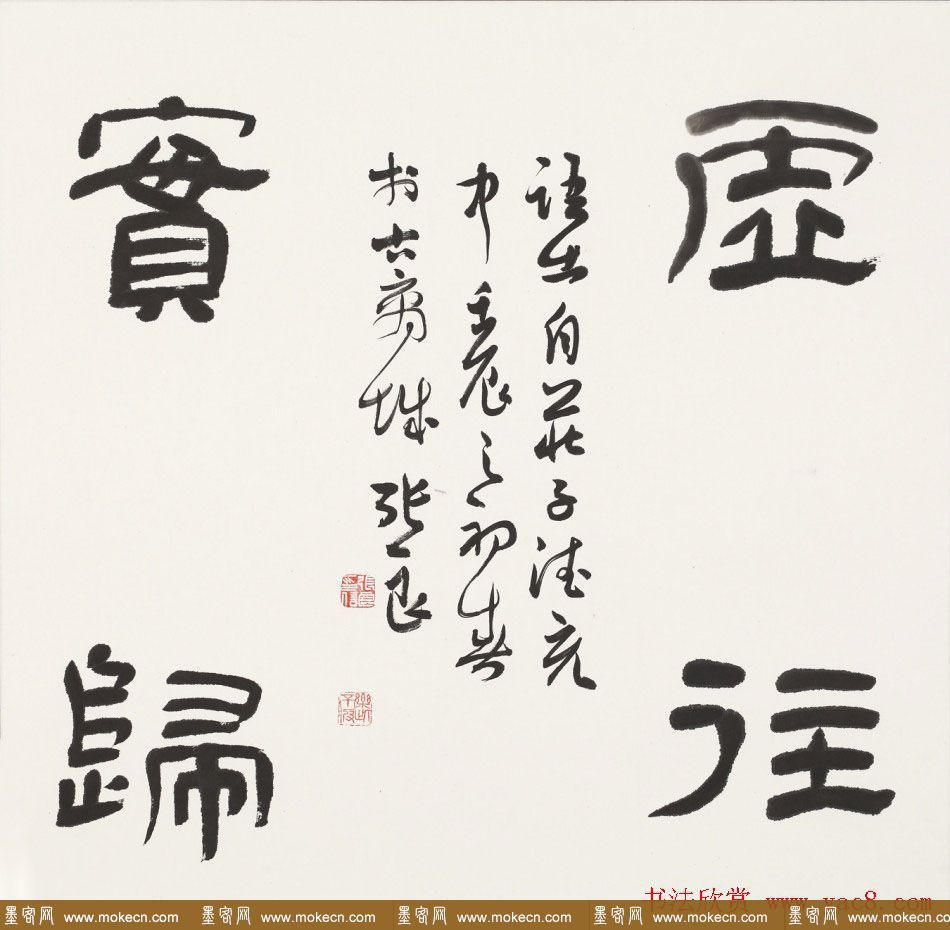 虛往
實歸
語出自莊子德充
中壬辰之初春
於古商城張良
书法欣赏 www.yac8.com
墨客网 www.mokecn.com 墨客网 www.mokecn.com 墨客网 www.mokecn.com 墨客网 www.mokecn.com 墨客网 www.mokecn.com